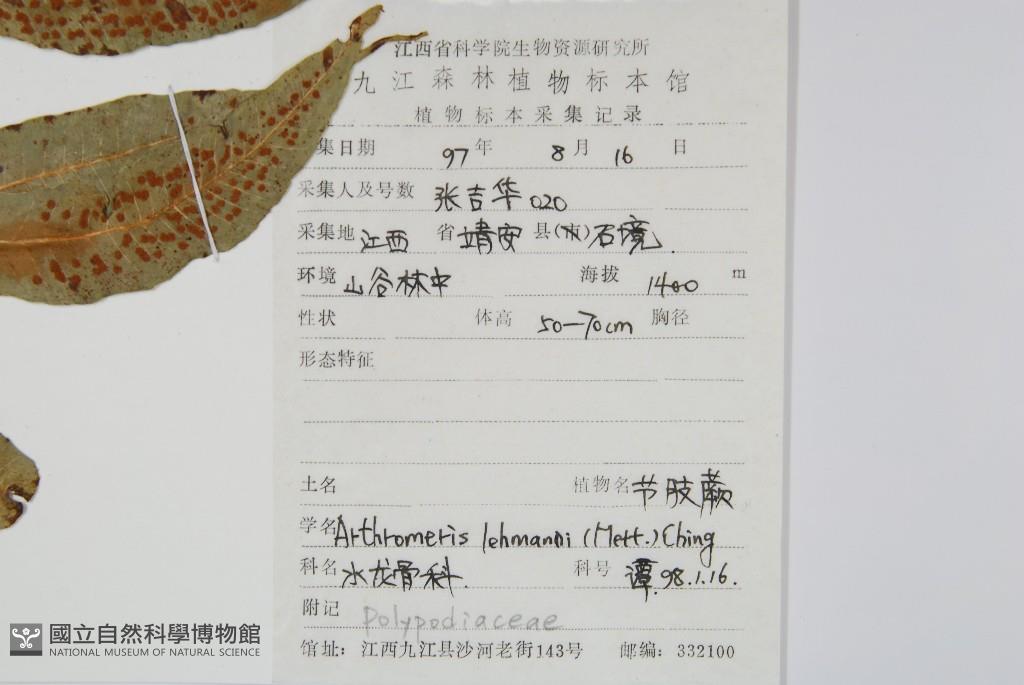 江西省科学院生物资源研究所
九江森林植物标本馆
植物标本采集记录
集日期 97年 8月 16日
采集人及号数 张吉华 020
采集地 江西 省 靖安 县(市) 石境.
环境 山谷林中 海拔 1400 m
性状 体高 50—70cm 胸径
形态特征
土名 植物名 节肢蕨
学名 Arthromeris lehmanni (Mett.) Ching
科名 水龙骨科. 科号 谭.98.1.16.
附记 Polypodiaceae
馆址：江西九江县沙河老街143号 邮编：332100
國立自然科學博物館
NATIONAL MUSEUM OF NATURAL SCIENCE